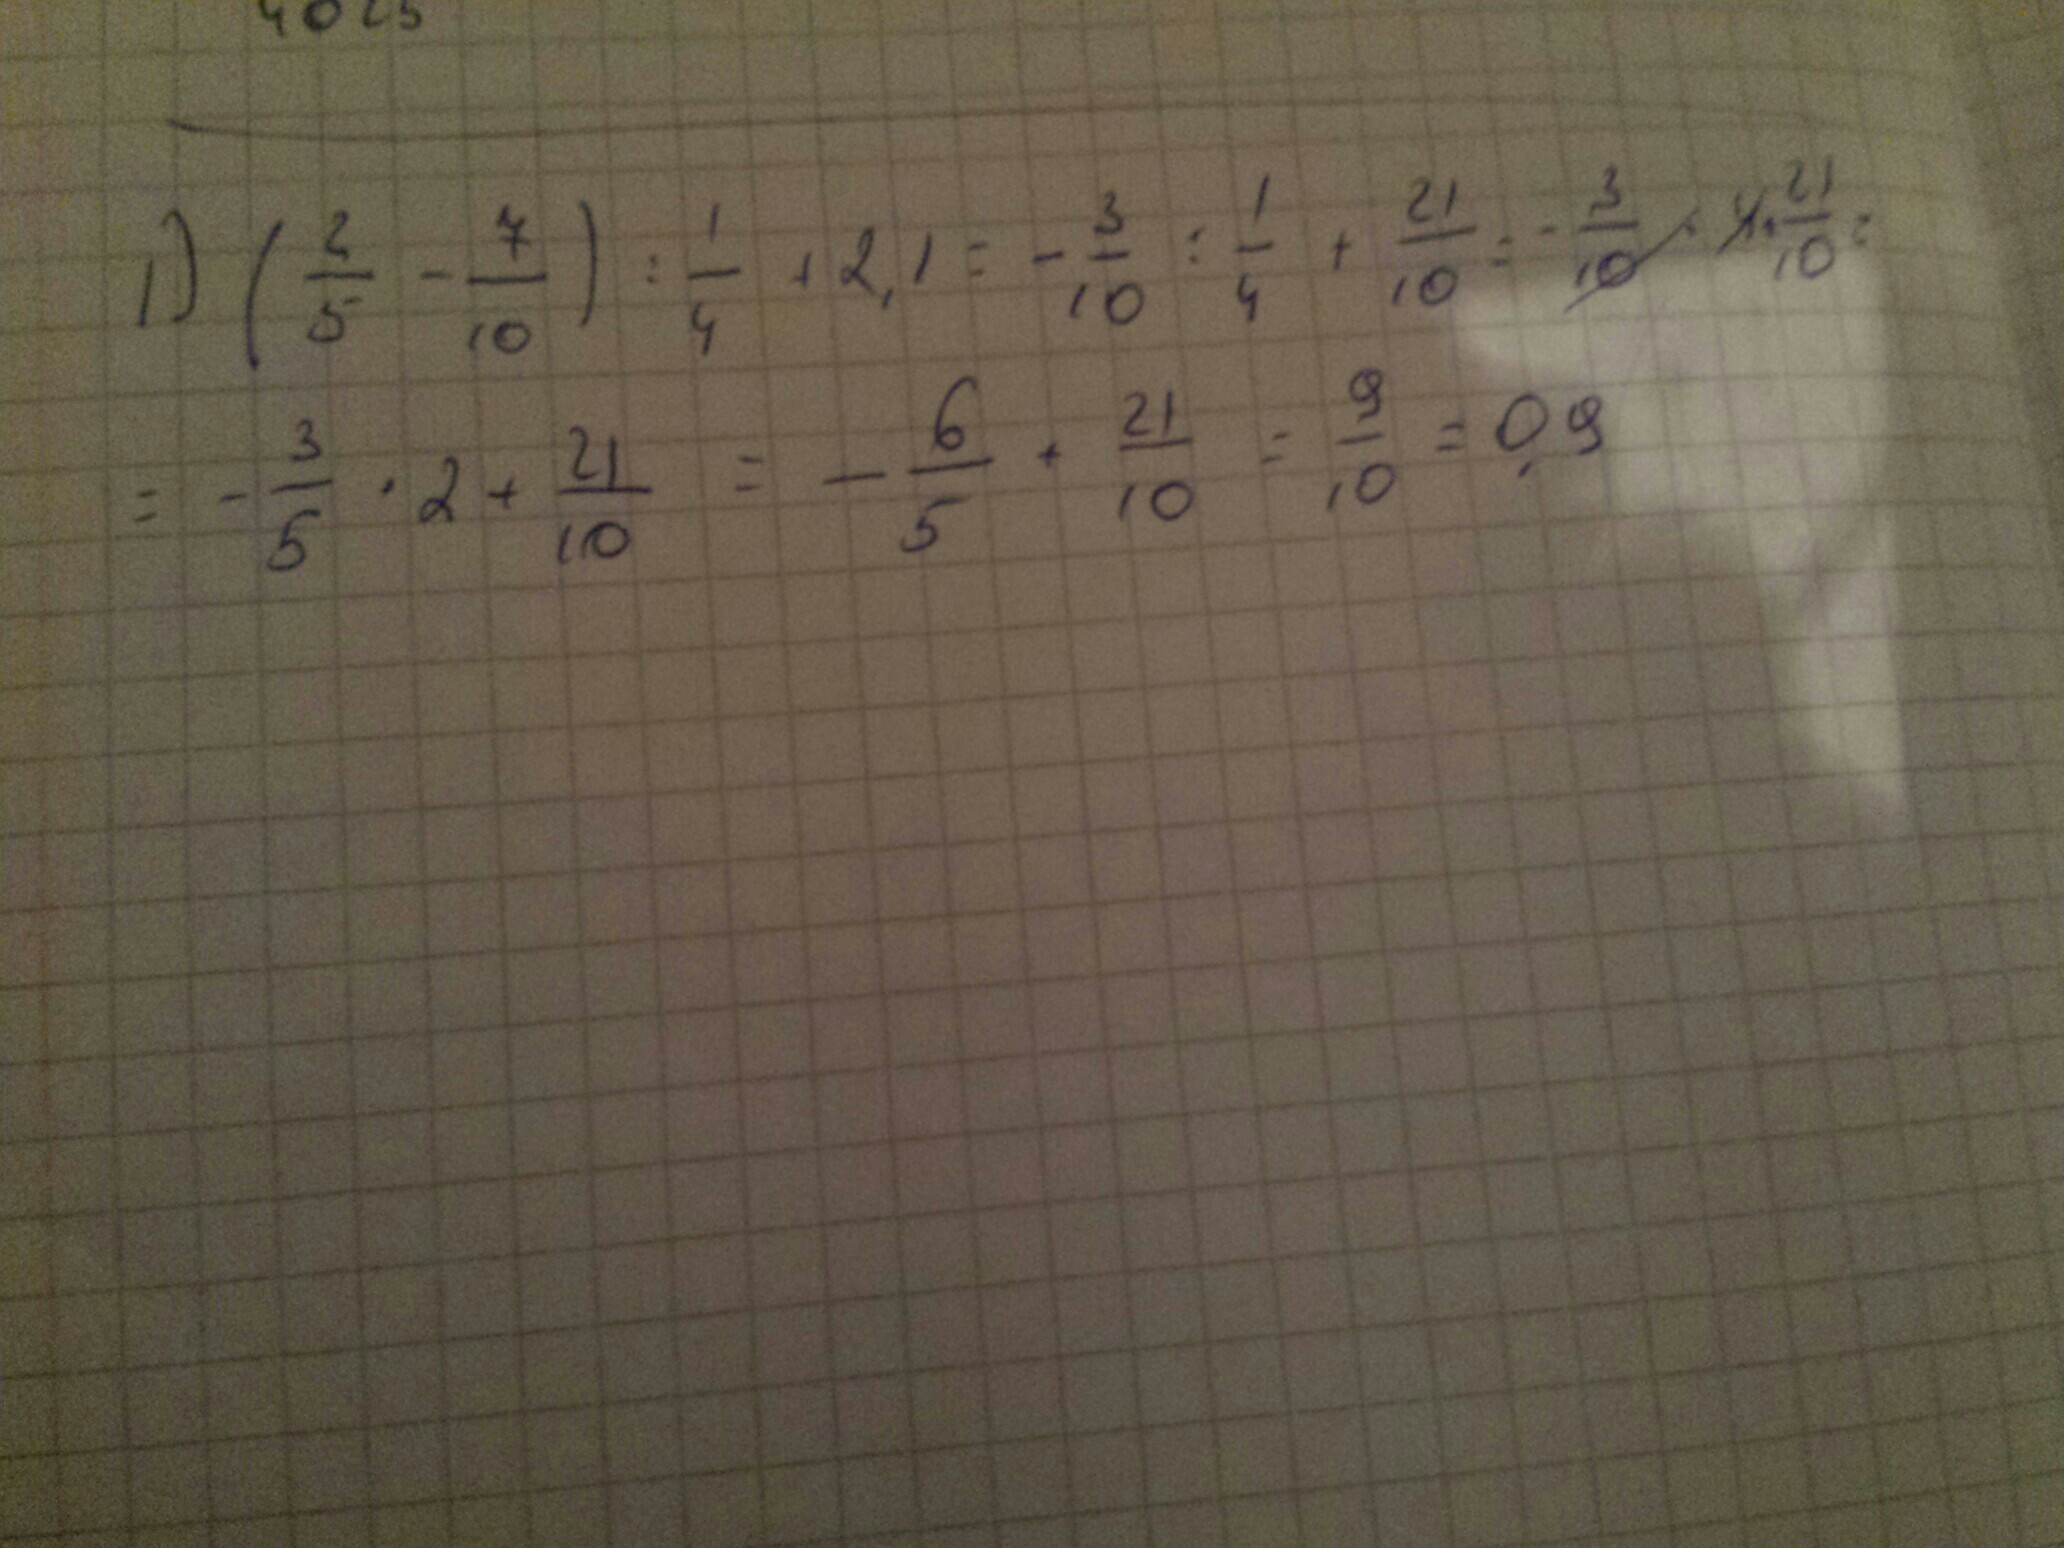 4025
1) (2/5 - 7/10) : 1/4 + 2,1 = - 3/10 : 1/4 + 21/10 = - 3/10 · 4 + 21/10 =
= - 3/5 · 2 + 21/10 = - 6/5 + 21/10 = 9/10 = 0,9